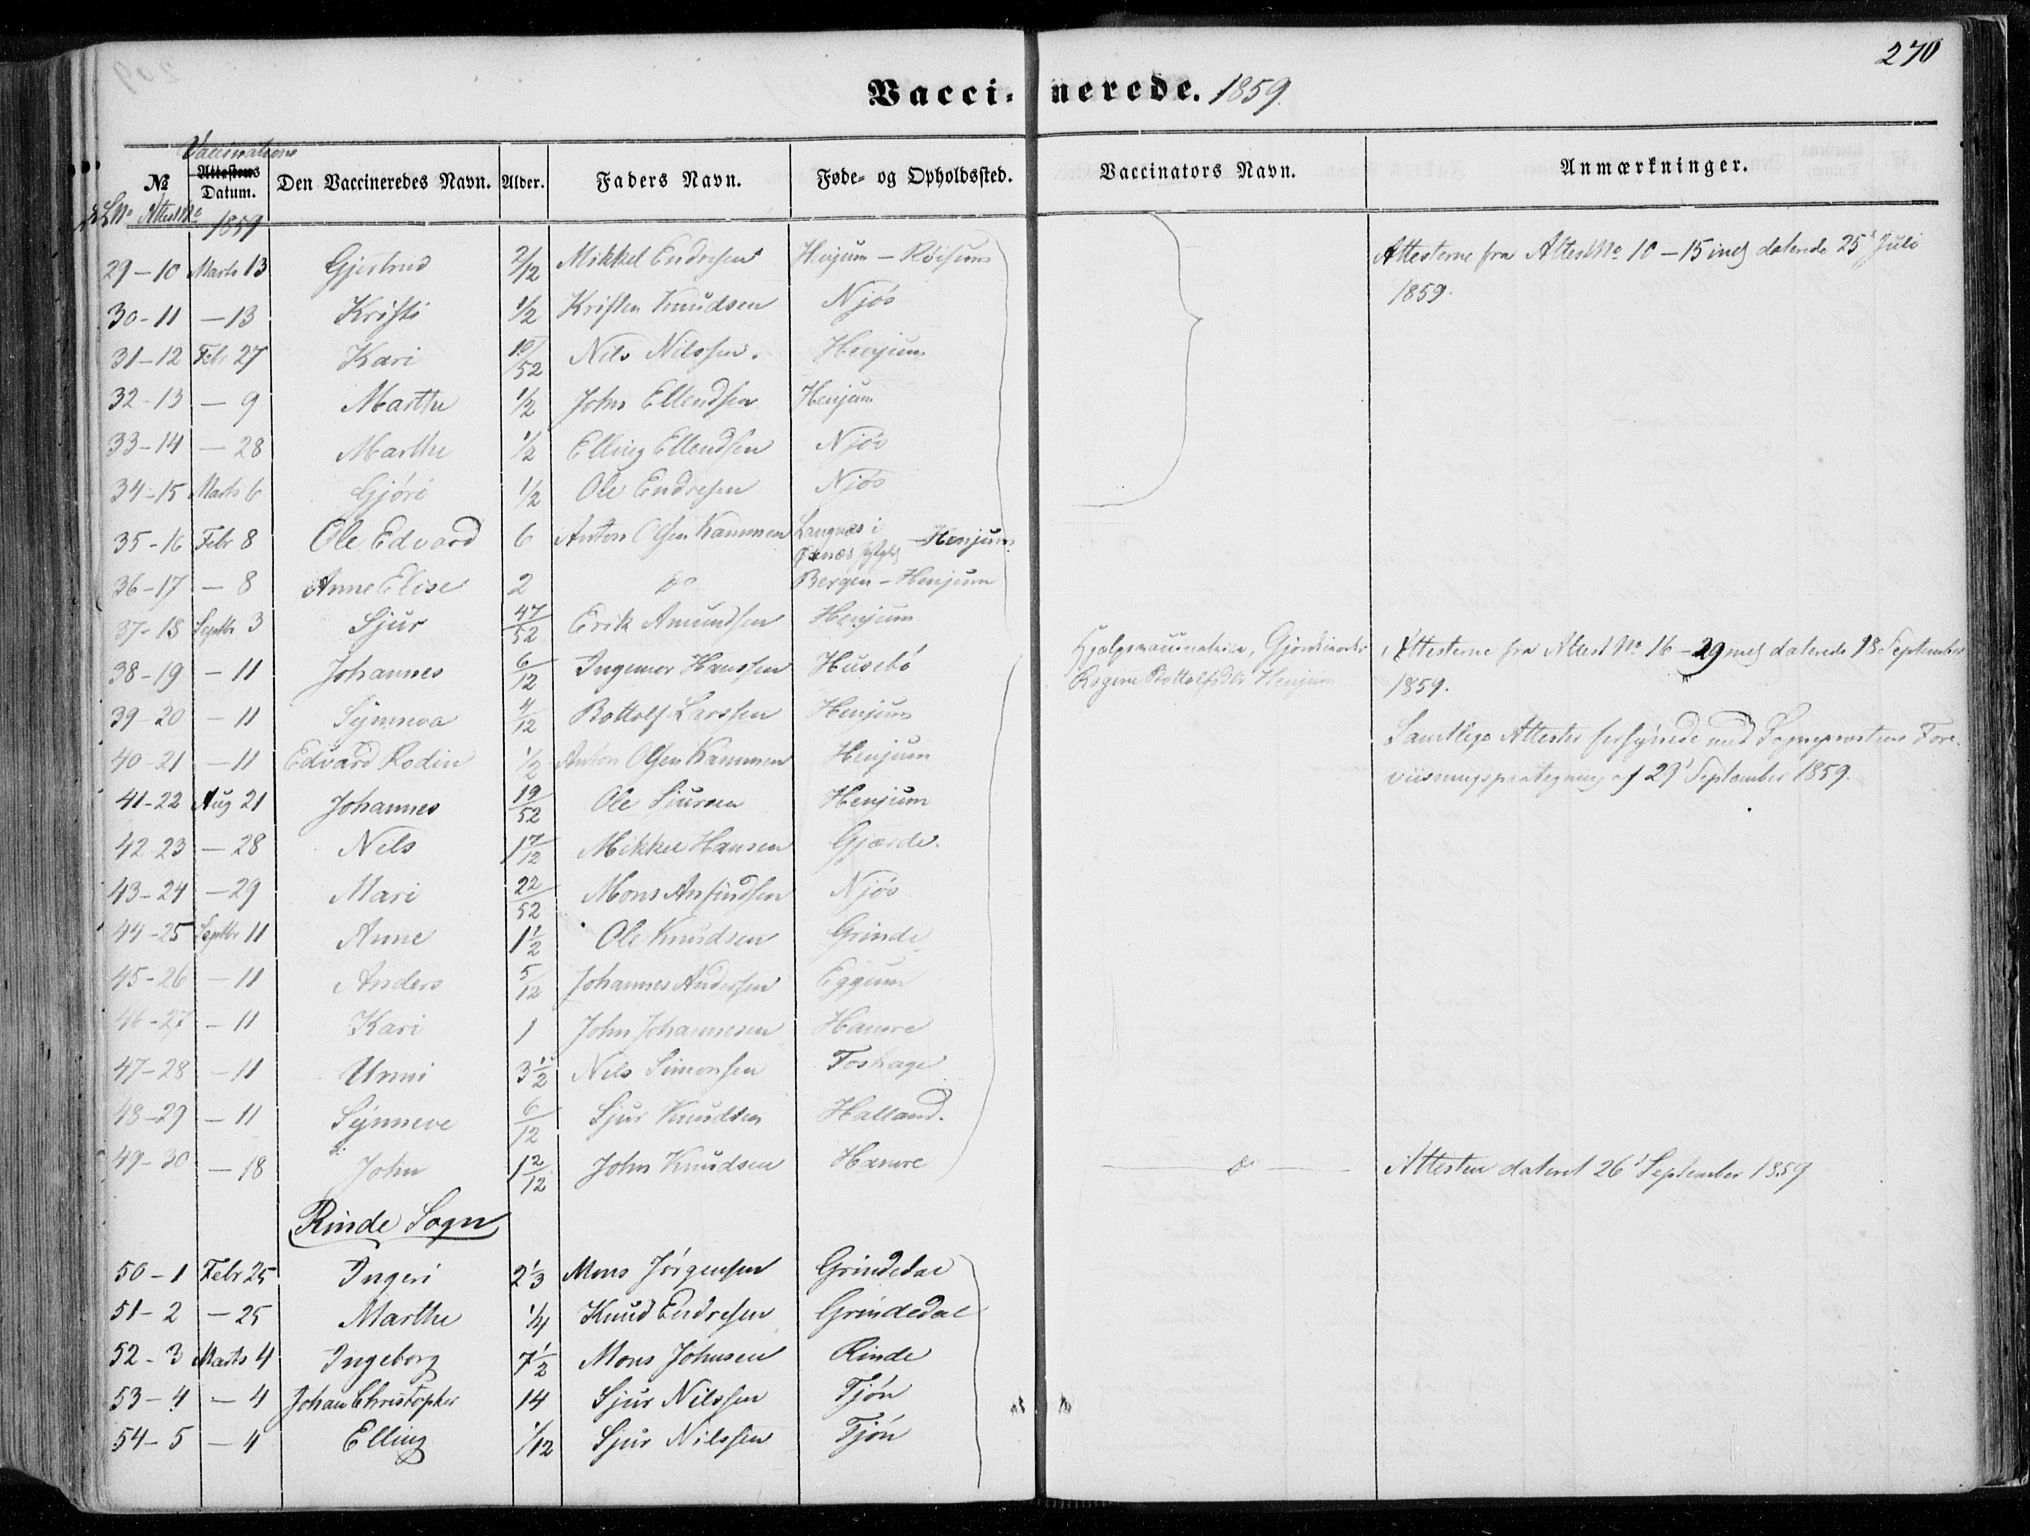 270
Vacci- nerede. 1859.
Vaccinations
№ Attestens Datum. Den Vaccineredes Navn. Alder. Faders Navn. Føde- og Opholdssted. Vaccinators Navn. Anmærkninger.
LNo AttestNo 1859
29-10 Marts 13 Gjertrud 2/12 Mikkel Endresen Henjum - Röisum Attesterne fra Attest No 10-15 incl daterede 25 Juli
1859.
30-11 - 13 Kristi 1/2 Kristen Knudsen Njös
31-12 Febr 27 Kari 10/52 Nils Nilssen. Henjum
32-13 - 9 Marthe 1/2 John Ellendsen Henjum
33-14 - 28 Marthe 1/2 Elling Ellendsen Njös
34-15 Marts 6 Gjöri 1/2 Ole Endresen Njös
35-16 Febr 8 Ole Edvard 6 Anton Olsen Kammen Langnæs i Øxnæs - Henjum
36-17 - 8 Anne Elise 2 do Bergen - Henjum
37-18 Septbr 3 Sjur 47/52 Erik Amundsen Henjum
38-19 - 11 Johannes 6/12 Ingemor Hanssen Husebö Hjelpevaccinatrice, Gjordemoder Attesterne fra Attest No 16-29 incl daterede 18 September
Bottolfsdtr Henjum 1859.
39-20 - 11 Synneva 4/12 Bottolf Larssen Henjum
Samtlige Attester forsynede med Sogneprestens Fore-
40-21 - 11 Edvard Rodin 1/2 Anton Olsen Kammen Henjum
viisningspaategning af 29 September 1859.
41-22 Aug 21 Johannes 19/52 Ole Sjursen Henjum
42-23 - 28 Nils 1 7/12 Mikkel Hansen Gjærde.
43-24 - 29 Mari 22/52 Mons Anfindsen Njös
44-25 Septbr 11 Anne 1 1/2 Ole Knudsen Grinde
45-26 - 11 Anders 5/12 Johannes Andersen Eggum
46-27 - 11 Kari 1 John Johannesen Hamre
47-28 - 11 Unni 3 1/2 Nils Simonsen Foshage
48-29 - 11 Synneve 6/12 Sjur Knudsen Halland.
49-30 - 18 John 1 2/12 John Knudsen Hamre - do - Attesten dateret 26 September 1859
Rinde Sogn
50-1 Febr 25 Ingeri 2 1/3 Mons Jörgensen Grindedal
51-2 - 25 Marthe 1/4 Knud Endresen Grindedal
52-3 Marts 4 Ingeborg 7 1/2 Mons Johnsen Rinde
53-4 - 4 Johan Christopher 14 Sjur Nilssen Tjön
54-5 - 4 Elling 1/12 Sjur Nilssen Tjön